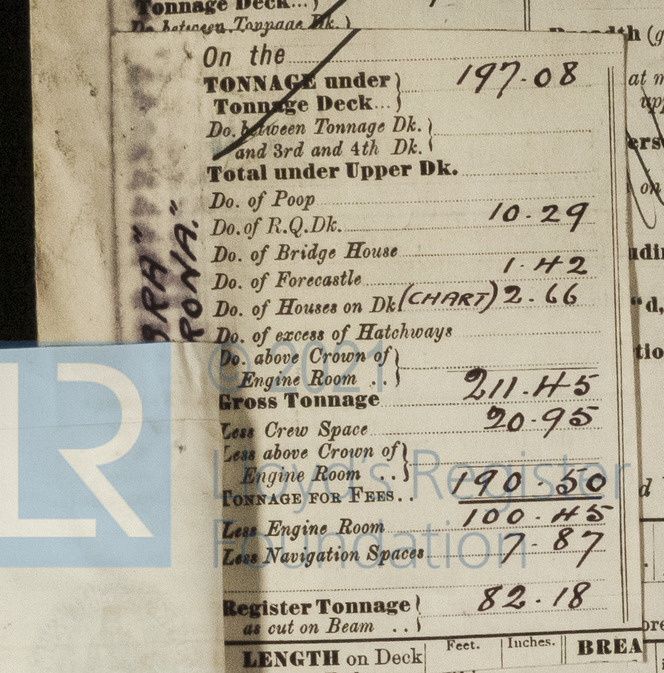 Tonnage Deck...)
Do between Tonnage Dk.)
On the
TONNAGE under } 197.08
Tonnage Deck...
Do. between Tonnage Dk.
and 3rd and 4th Dk.
Total under Upper Dk.
Do. of Poop
Do. of R.Q.Dk. 10.29
Do. of Bridge House
Do. of Forecastle 1.42
Do. of Houses on Dk (CHART) 2.66
Do. of excess of Hatchways
Do. above Crown of
Engine Room ..
Gross Tonnage 211.45
Less Crew Space 20.95
Less above Crown of
Engine Room ..
TONNAGE FOR FEES.. 190.50
Less Engine Room 100.45
Less Navigation Spaces 7.87
Register Tonnage } 82.18
as cut on Beam ..
LENGTH on Deck Feet. Inches. BREA
RONA."
at m
on
"d,
© 2021
LR
Lloyd's Register
Foundation